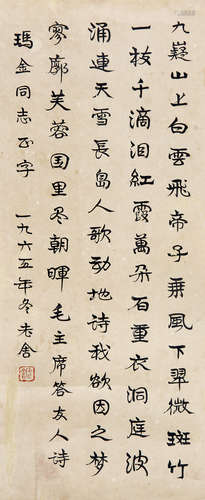 九嶷山上白雲飛帝子乘風下翠微斑竹
一枝千滴泪紅霞萬朵百重衣洞庭波
涌連天雪長島人歌動地詩我欲因之梦
寥廓芙蓉国里尽朝暉 毛主席答友人詩
瑪金同志正字 一九六五年冬老舍